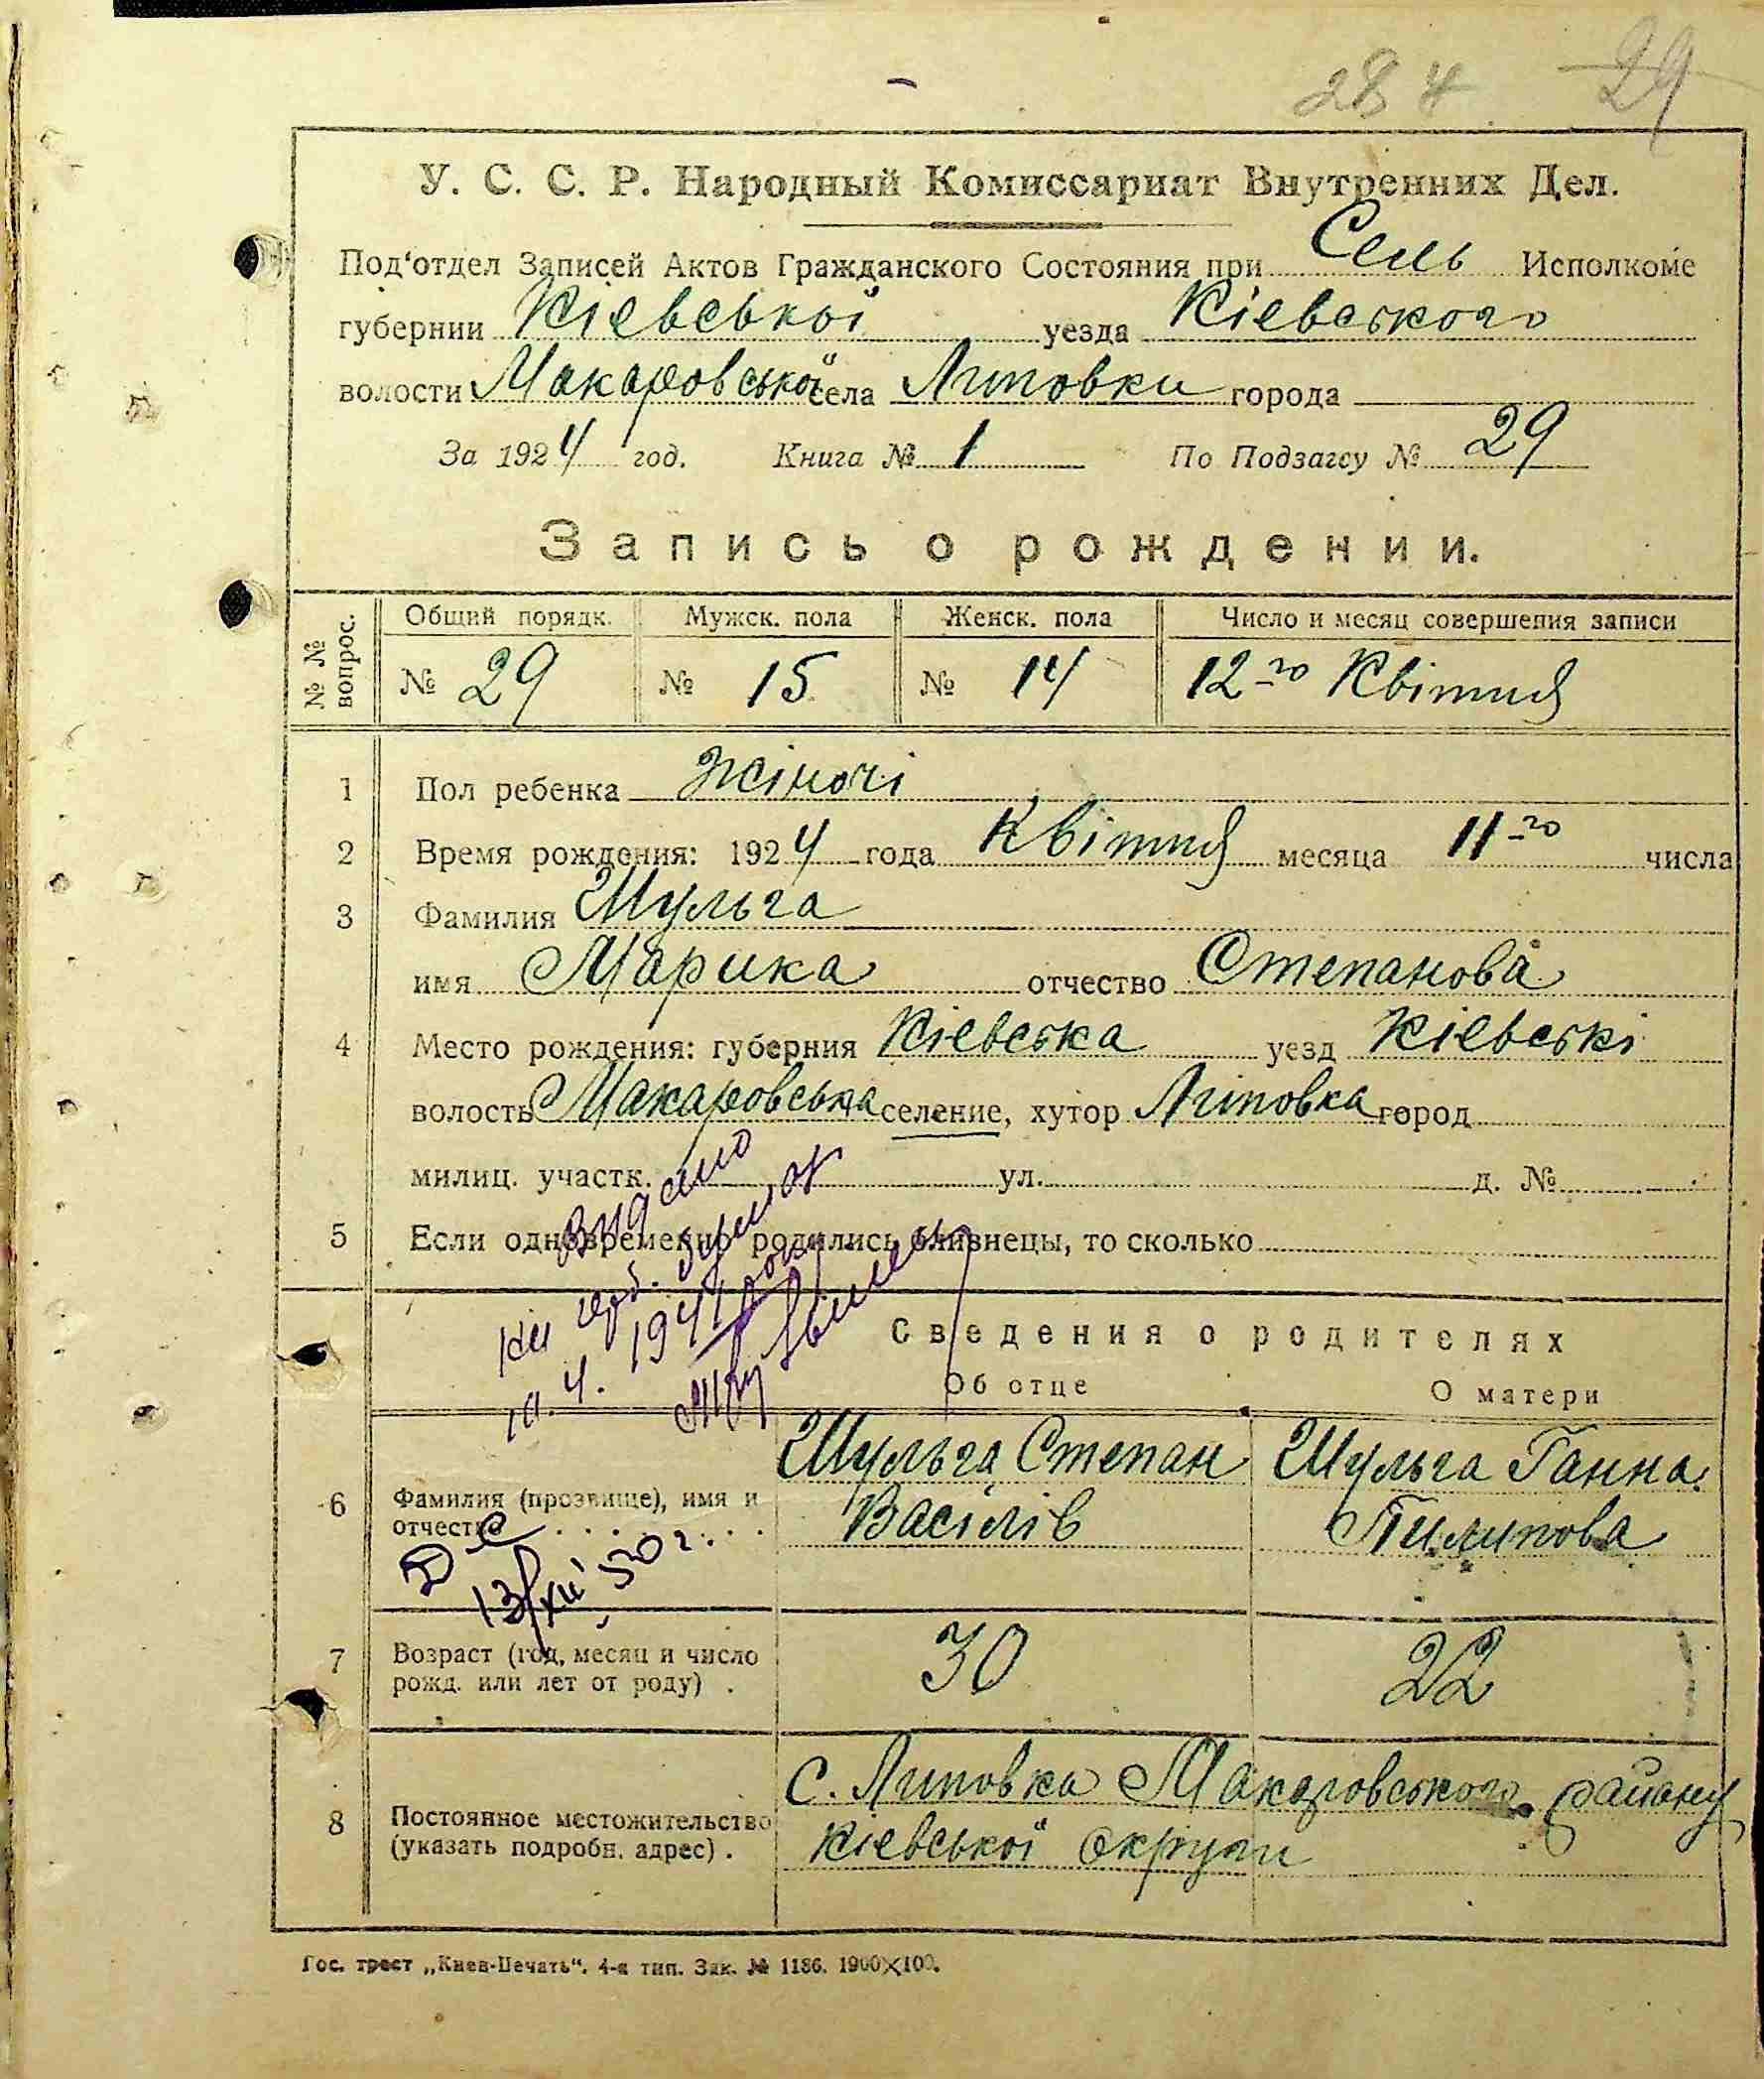 28 4 29
У. С. С. Р. Народный Комиссариат Внутренних Дел.
Под'отдел Записей Актов Гражданского Состояния при Сель Исполкоме
губернии Кіевської уезда Кіевського
волости Макаровської села Липовки города
За 1924 год. Книга № 1 По Подзагсу № 29
Запись о рождении.
№ № вопрос. Общий порядк. Мужск. пола Женск. пола Число и месяц совершения записи
№ 29 № 15 № 14 12-го Квітня
1 Пол ребенка жіночі
2 Время рождения: 1924 года Квітня месяца 11-го числа
3 Фамилия Шульга
имя Марика отчество Степанова
4 Место рождения: губерния Кіевська уезд Кіевські
волость Макаровська селение, хутор Липовка город
милиц. участк. ул. д. №
5 Если одновременно родились близнецы, то сколько
Видано
1941 року
Сведения о родителях
Об отце О матери
Шульга Степан Шульга Ганна
6 Фамилия (прозвище), имя и Васілів Пилипова
отчество
13/XII 50 г.
7 Возраст (год, месяц и число 30 22
рожд. или лет от роду) .
с. Липовка Макаровського району
8 Постоянное местожительство Кіевської округи
(указать подробн. адрес) .
Гос. трест „Киев-Печать“. 4-я тип. Зак. № 1186. 1900×100.